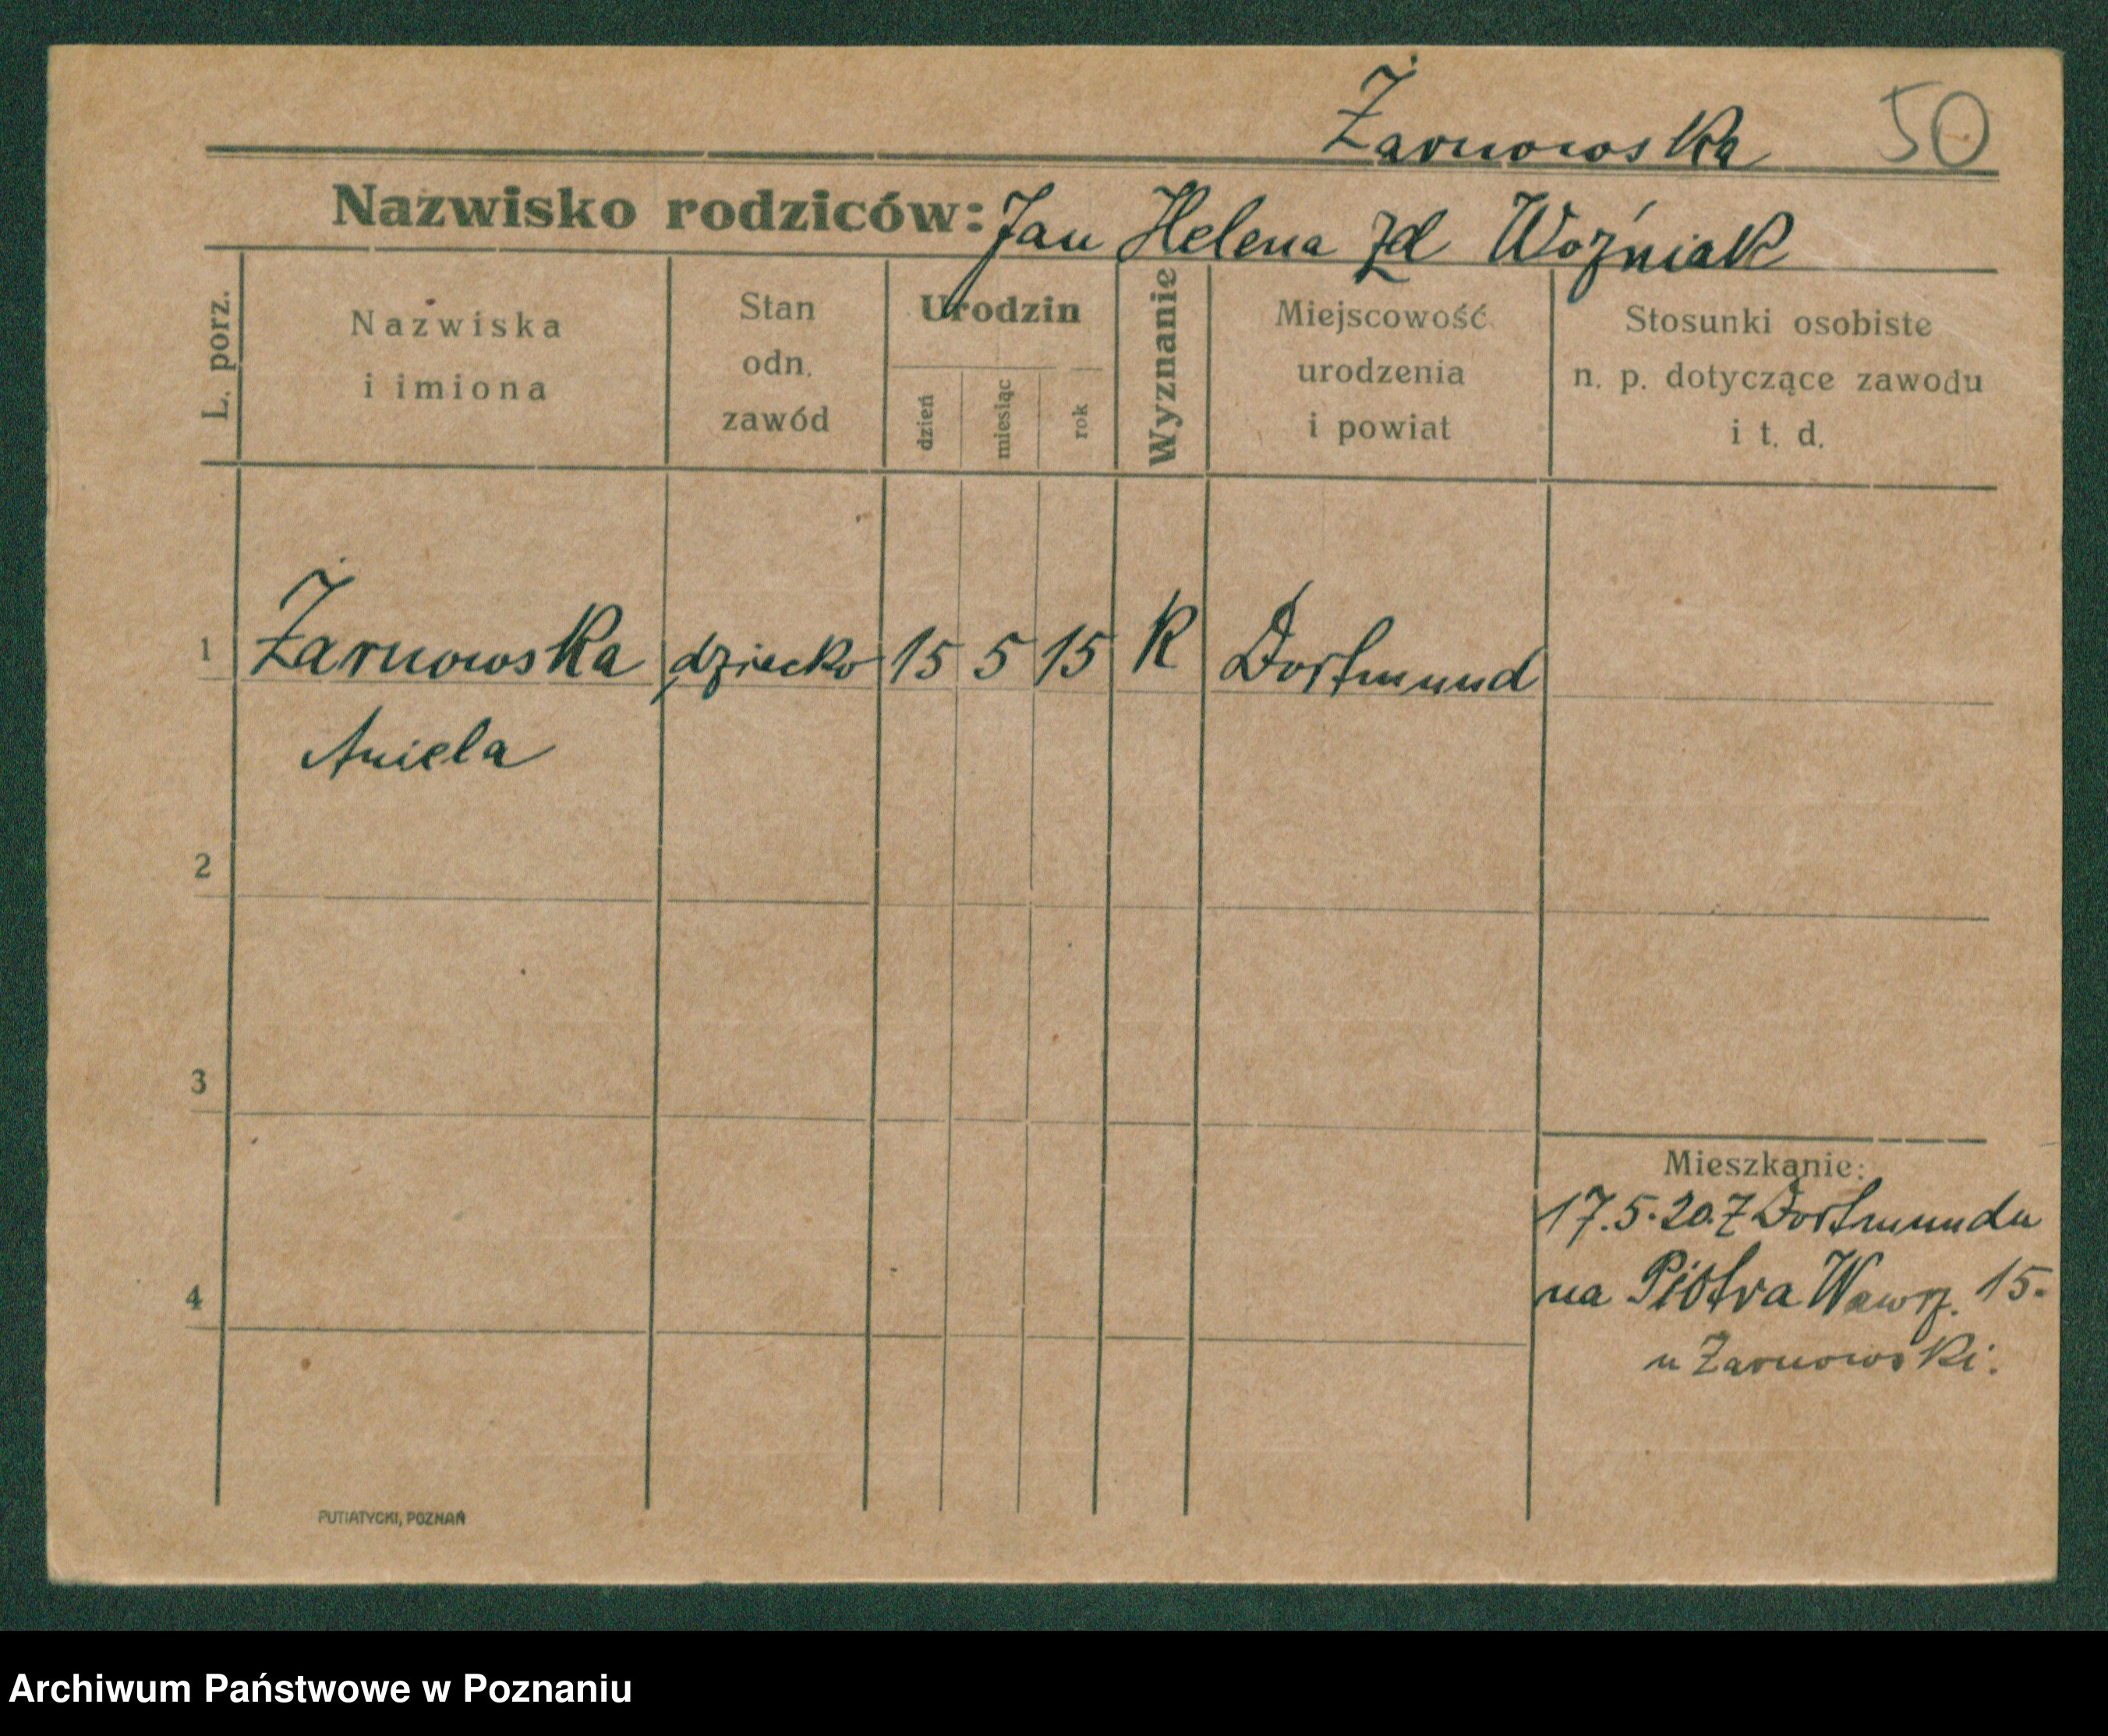 Żarnowska 50
Nazwisko rodziców: Jan Helena zd Woźniak
L. porz.
Nazwiska
i imiona
Stan
odn.
zawód
Urodzin
dzień
miesiąc
rok
Wyznanie
Miejscowość
urodzenia
i powiat
Stosunki osobiste
n. p. dotyczące zawodu
i t. d.
1 Żarnowska dziecko 15 5 15 K Dortmund
Aniela
2
3
4
Mieszkanie:
17.5.20. z Dortmundu
na Piotra Wawrz. 15.
u Żarnowski.
PUTIATYCKI, POZNAŃ
Archiwum Państwowe w Poznaniu